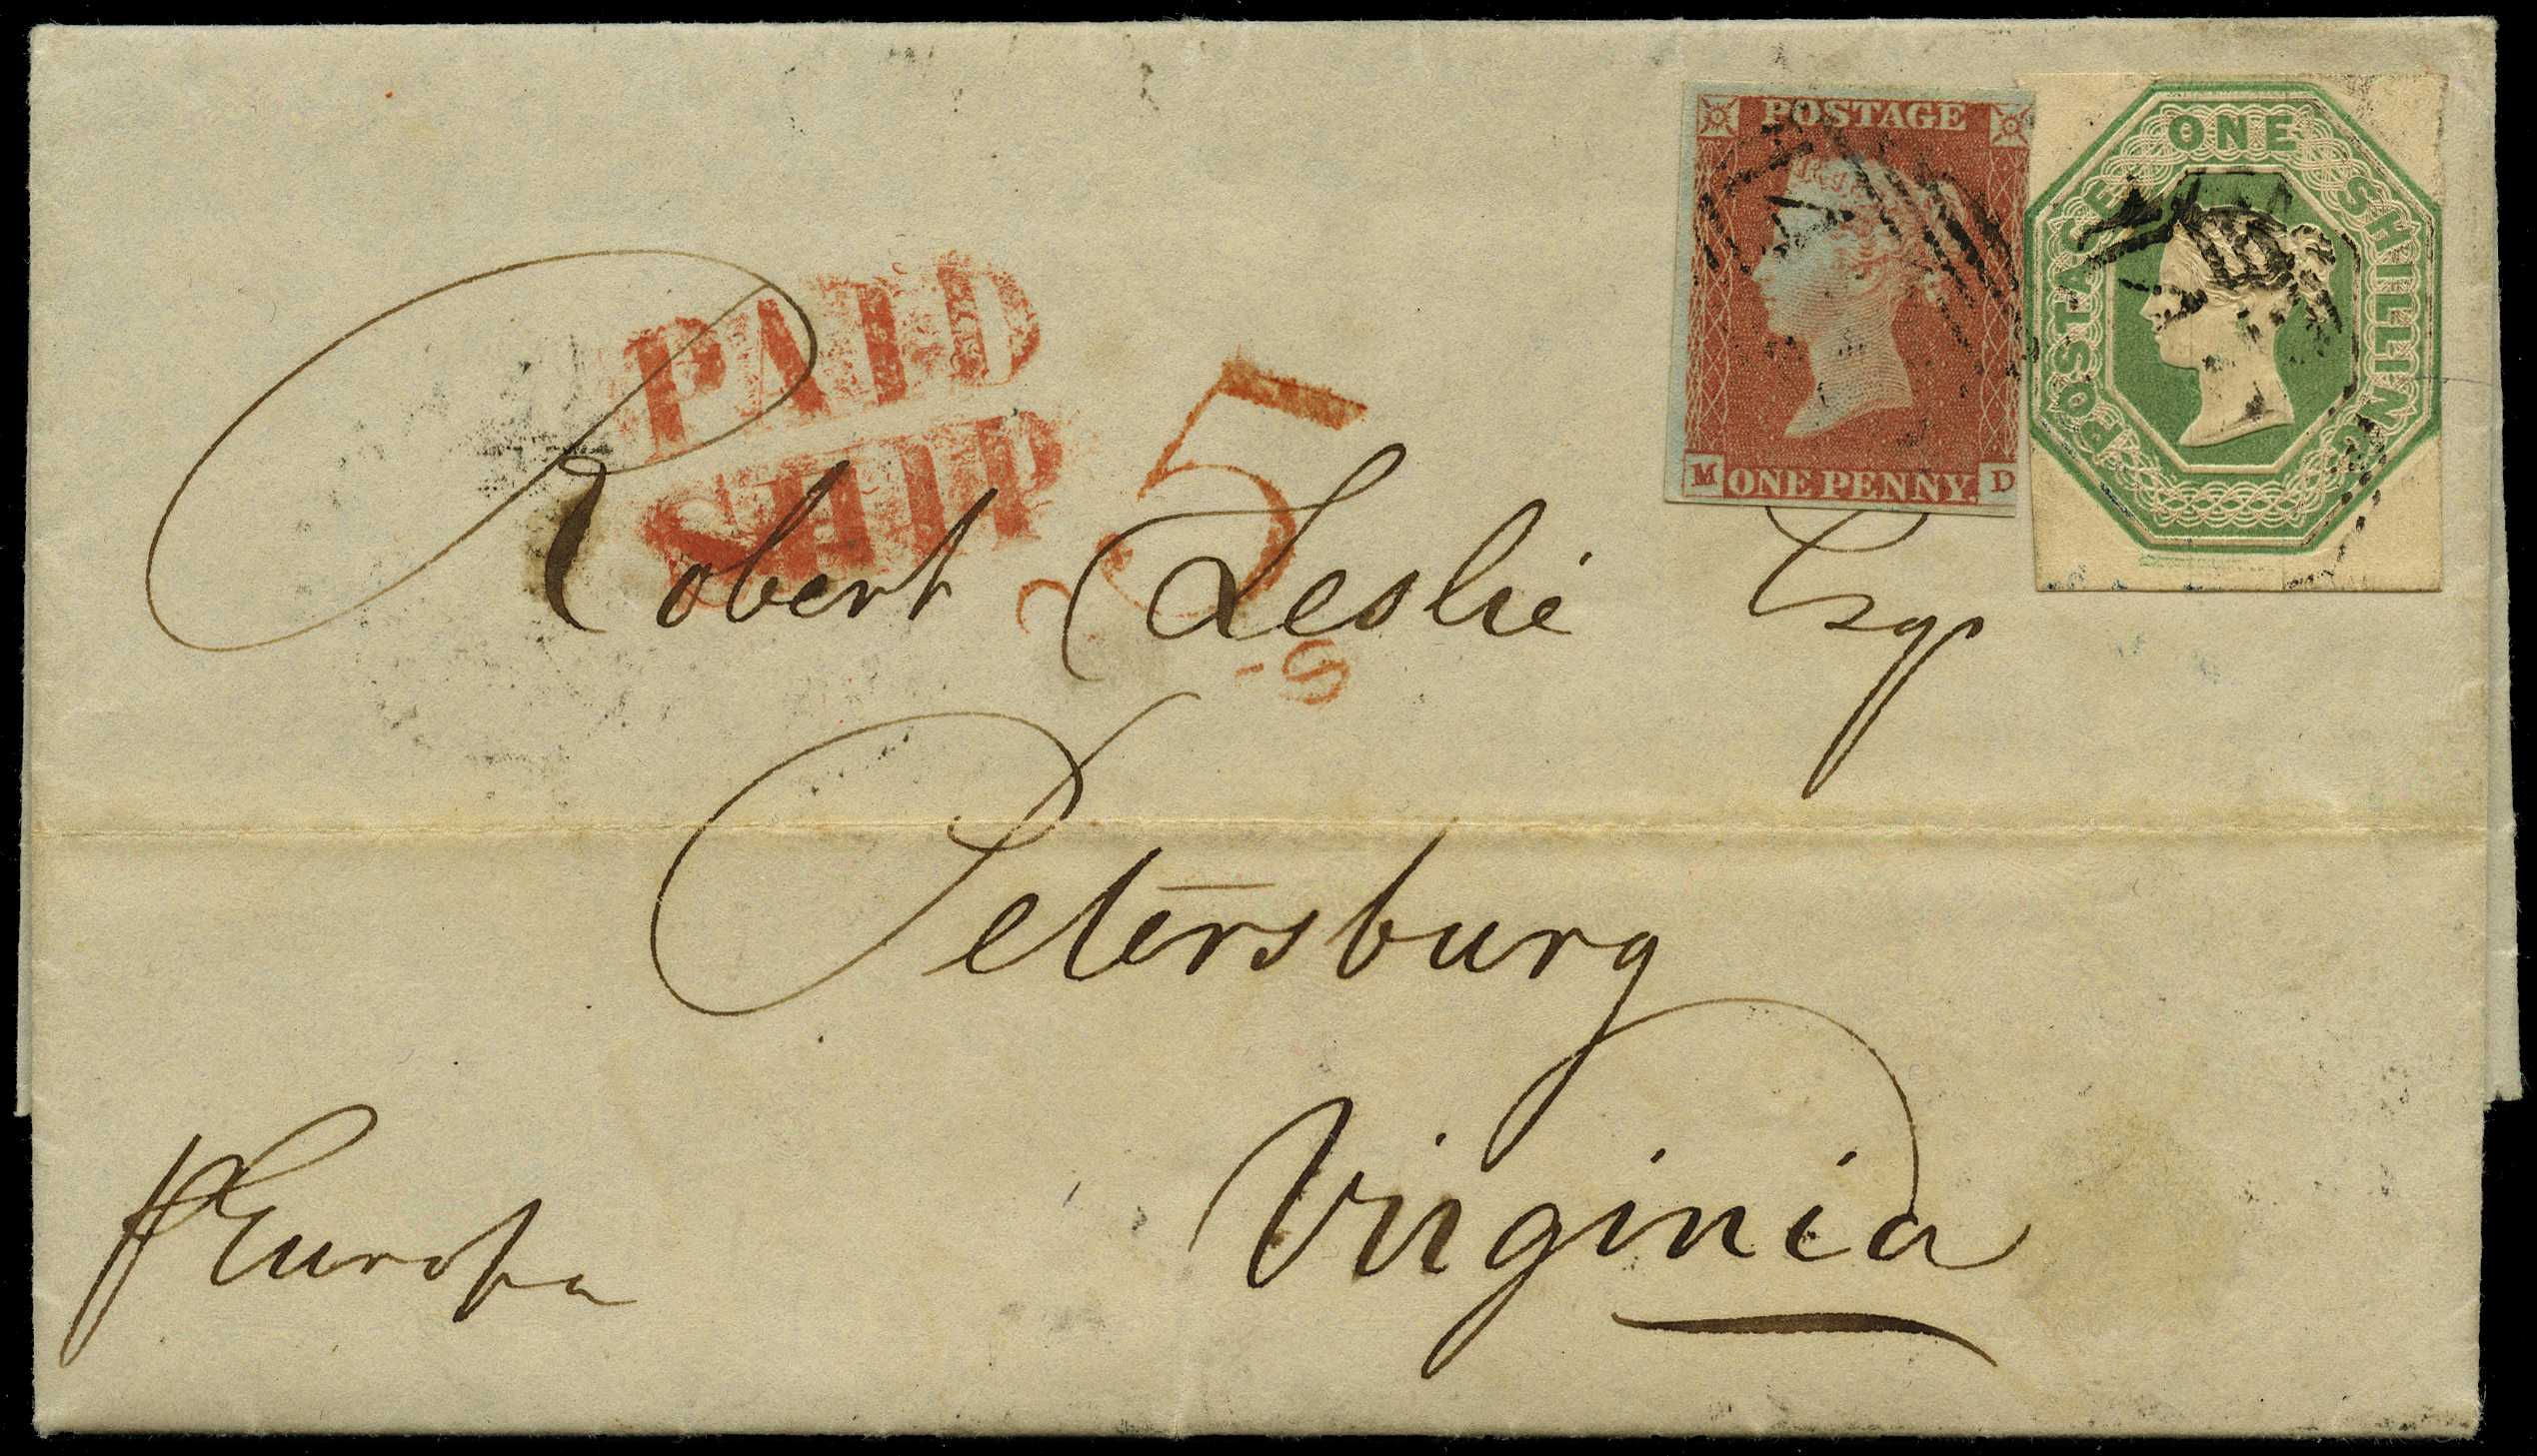 POSTAGE
ONE PENNY.
M D
POSTAGE ONE SHILLING
PAID
SHIP
5
Robert Leslie Esqr
Petersburg
Virginia
p Europa